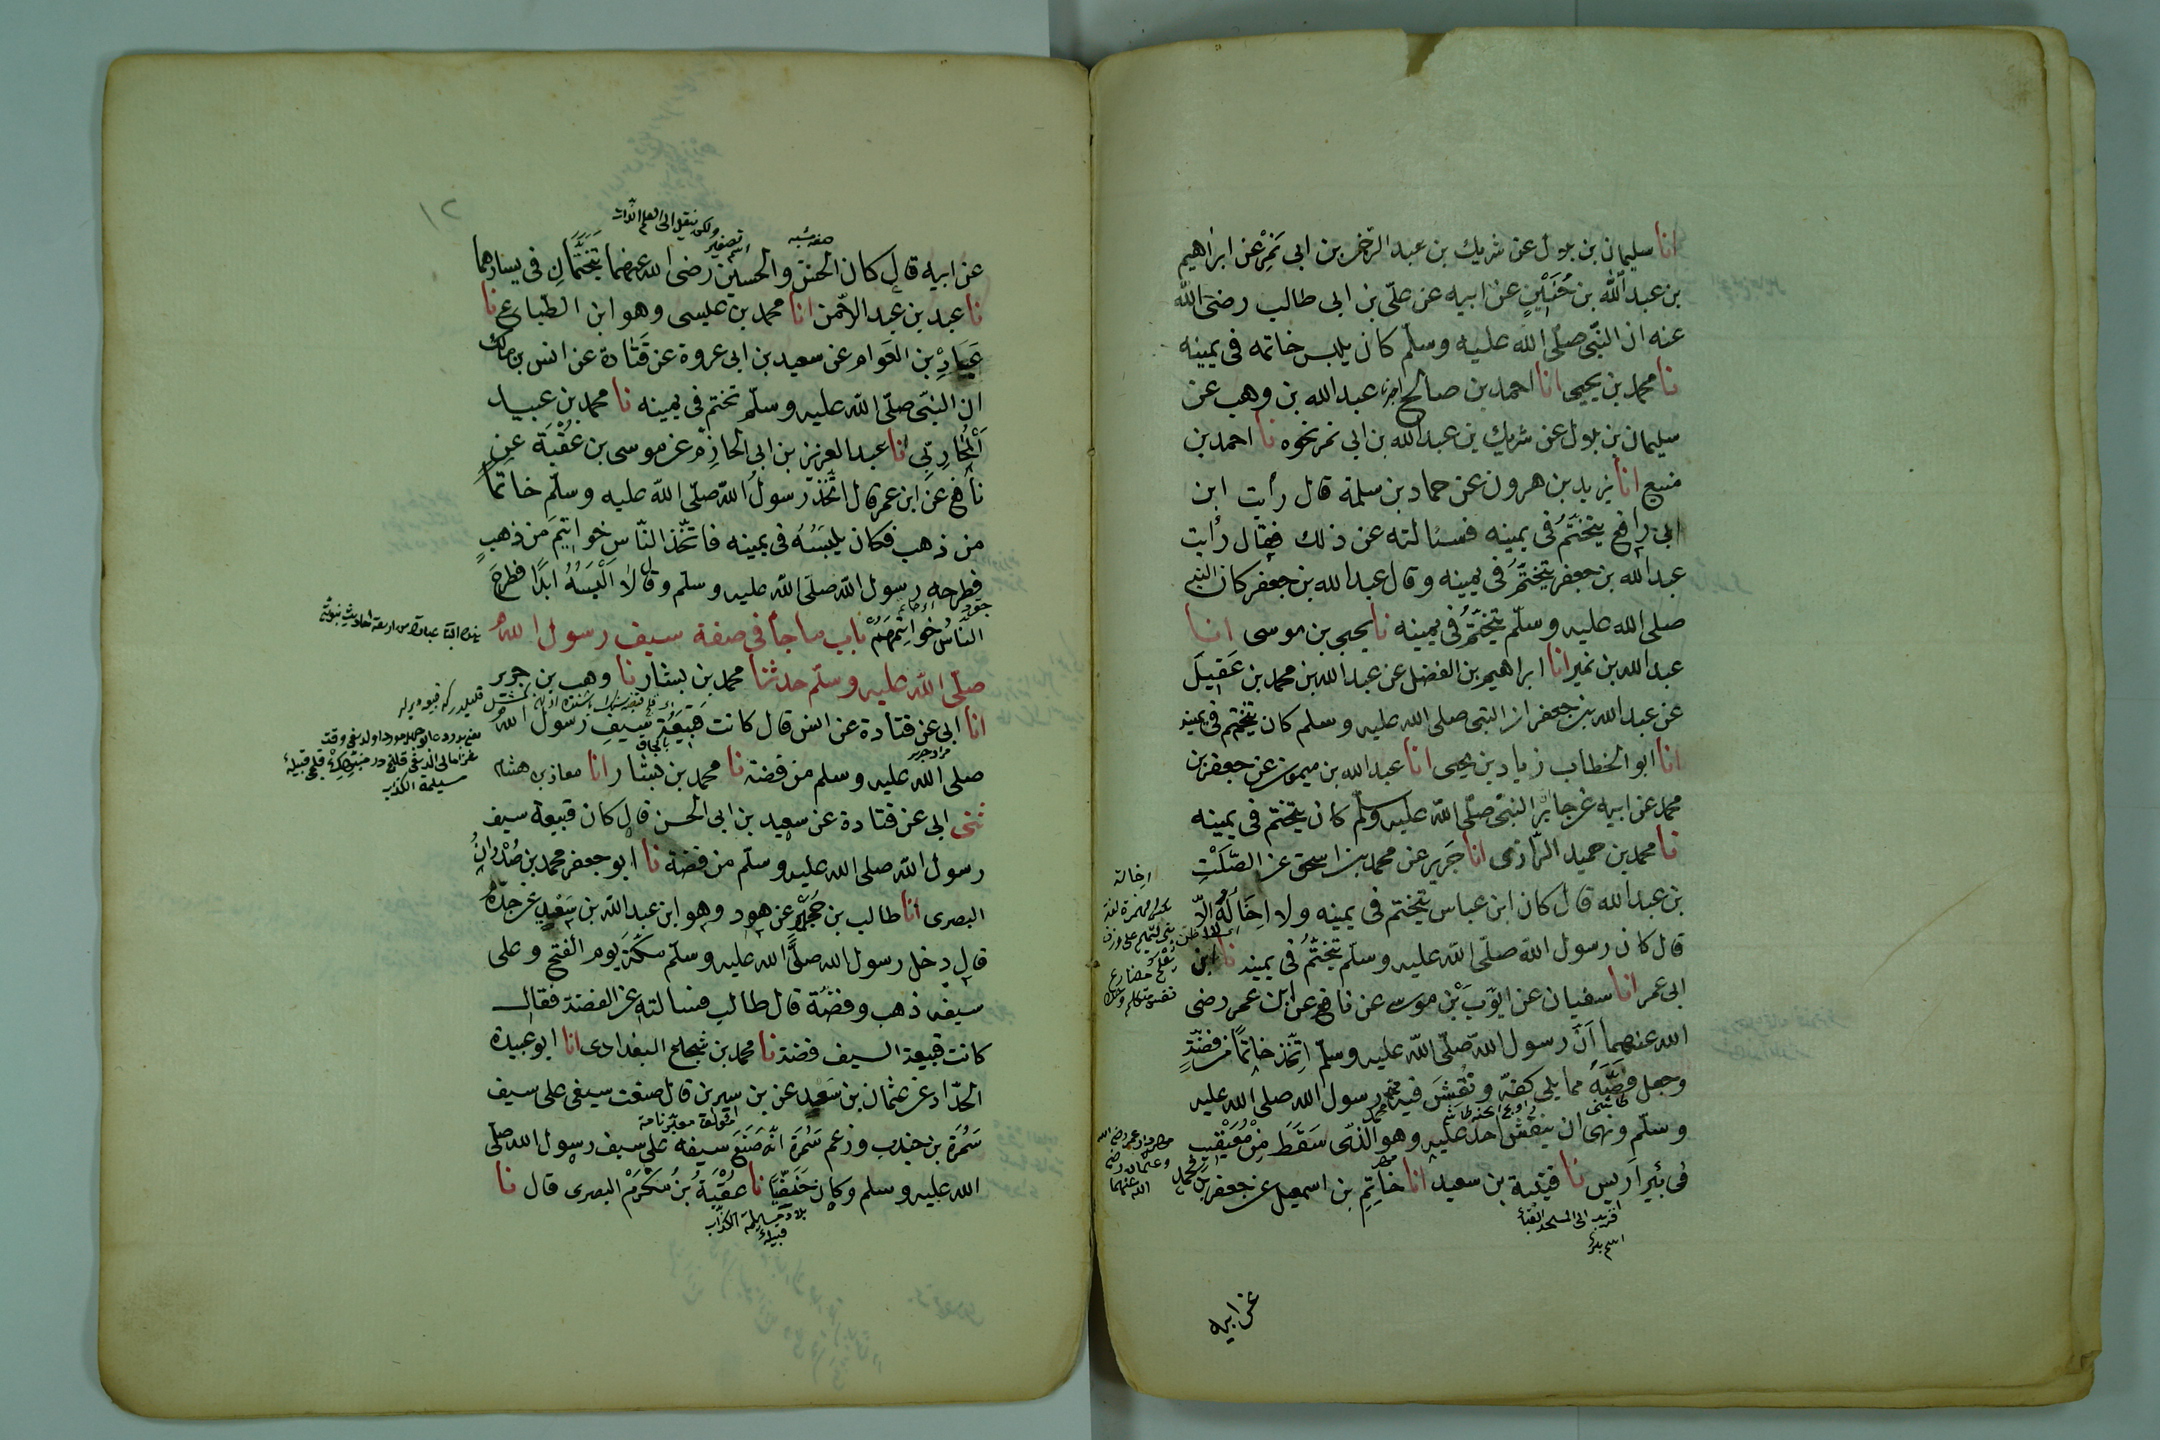 انا سليمان بن بلال عن شريك بن عبد الرحمن بن ابى نَمِرٍ عن ابراهيم
بن عبد الله بن حُنَيْنٍ عن ابيه عن علىّ بن ابى طالب رضى الله
عنه ان النّبى صلّى الله عليه وسلّم كان يلبس خاتمه فى يمينه
نا محمد بن يحيى انا احمد بن صالح عبد الله بن وهب عن
سليمان بن بلال عن شريك بن عبد الله بن ابى نمر نحوه نا احمد بن
منيع انا يزيد بن هرون عن حماد بن سلمة قال رأيت ابن
ابى رافع يتختّمُ فى يمينه فسئالته عن ذلك فقال رأيت
عبد الله بن جعفر يتختّمُ فى يمينه وقال عبد الله بن جعفر كان النبى
صلى الله عليه وسلّم يتختّمُ فى يمينه نا يحيى بن موسى انا
عبد الله بن نمير انا ابراهيم بن الفضل عن عبد الله بن محمد بن عَقِيلَ
عن عبد الله بن جعفر ان النبى صلى الله عليه وسلم كان يتختم فى يمينه
انا ابو الخطاب زياد بن يحيى انا عبد الله بن ميمون عن جعفر بن
محمد عن ابيه عن جابر ان النبىّ صلّى الله عليه وسلّم كان يتختم فى يمينه
نا محمد بن حميد الرّازى انا جَرير عن محمد بن اسحق عن الصّلْتِ
بن عبد الله قال كان ابن عباس يتختم فى يمينه ولا اِخَالُهُ اِلّا
قال كان رسول الله صلّى الله عليه وسلّم يتختّمُ فى يمينه نا ابن
ابى عمر انا سفيان عن ايّوب بْن موسى عن نافع عن ابن عمر رضى
الله عنهما اَنّ رسول الله صلّى الله عليه وسلّم اتّخذ خاتمًا من فضّةٍ
وجعل فصّهُ مما يلى كفّه ونُقِشَ فيه محمّد رسول الله صلى الله عليه
وسلّم ونهى ان ينقُش احدٌ عليه وهو الّذى سَقَطَ مِنْ مُعَيْقِيبٍ
فى بئيراَريس نا قتيبة بن سعيد انا خاتِمِ بن اسمعيل عن جعفر بن محمد
اقرب الى المسجد القباء
اسم بئر
اِخاله
عن ابيه
١٢
ولكن نقل الى العلم
صفة مشبه
اسم تصغير
عن ابيه قال كان الحسن والحسين رضى الله عنهما يَتَخَتَّمَانِ فى يسارهما
نا عبد بن عبد الرّحمن انا محمد بن عيسى وهو ابن الطّباع نا
عَبَّادِ بن العَوام عن سعيد بن ابى عروة عن قَتَادة عن انس بن مالك
ان النبّى صلّى الله عليه وسلّم تختم فى يمينه نا محمد بن عبيد
اَلْمُحَارِبِّى انا عبد العزيز بن ابى الحازِم عن موسى بن عُقْبَة عن
نافع عن ابن عمر قال اتّخذ رسولُ الله صلّى الله عليه وسلّم خاتمًا
من ذهب فكان يلبَسُهُ فى يمينه فاتّخذ النّاس خواتيمَ من ذهبٍ
فطرحه رسول الله صلّى الله عليه وسلّم وقال لَا اَلْبَسَهُ ابدًا فطرحَ
النّاسُ خواتِمَهُمْ باب ما جاء فى صفة سيف رسول الله
صلّى الله عليه وسلّم حدثنا محمد بن بشار نا وهب بن جرير
انا ابى عن قتادة عن انس قال كانت قَبِيعَةُ سَيفِ رسول الله
صلى الله عليه وسلم من فضة نا محمد بن بشار انا معاذ بن هشام
ثنى ابى عن قتادة عن سعيد بن ابى الحسن قال كان قبيعة سيف
رسول الله صلى الله عليه وسلّم من فضة نا ابو جعفر محمد بن صُدْرانِ
البصرى انا طالب بن حُجَيْرٍ عن هود وهو ابن عبد الله بن سَعْيدٍ عن جدّه
قال دخل رسول الله صلَّى الله عليه وسلّم مكّةَ يوم الفتح وعلى
سيفه ذهب وفضّة قال طالب فسالته عن الفضة فقال
كانت قبيعة السيف فضة نا محمد بن شجاع البغدادى انا ابو عبيدة
الحدّاد عن عثمان بن سَعْيد عن بن سيرين قال صنعت سيفى على سيف
سَمُرَة بن جندب وزعم سَمُرَة انّه صَنَعَ سيفه على سيف رسول الله صلّى
الله عليه وسلم وكان حَنَفِيّا نا عُقْبَةُ بنُ مُكْرَمْ البصرى قال نا
قبيلة
مسيلمة الكذّاب